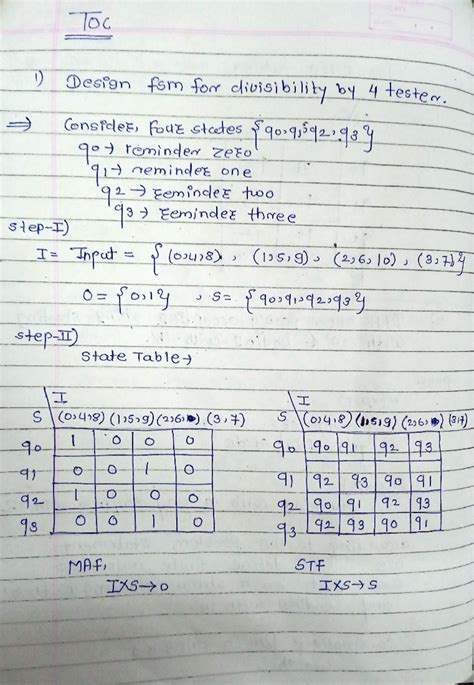 TOC
1) Design fsm for divisibility by 4 tester.
⇒ Consider, four states {q0,q1,q2,q3}
q0 → reminder zero
q1 → reminder one
q2 → reminder two
q3 → reminder three
step-I)
I = Input = {(0,4,8), (1,5,9), (2,6,10), (3,7)}
O = {0,1}, S = {q0,q1,q2,q3}
step-II)
State Table→
I
S (0,4,8) (1,5,9) (2,6, ) (3,7)
q0 1 0 0 0
q1 0 0 1 0
q2 1 0 0 0
q3 0 0 1 0
MAF,
I×S→O
I
S (0,4,8) (1,5,9) (2,6, ) (3,7)
q0 q0 q1 q2 q3
q1 q2 q3 q0 q1
q2 q0 q1 q2 q3
q3 q2 q3 q0 q1
STF
I×S→S